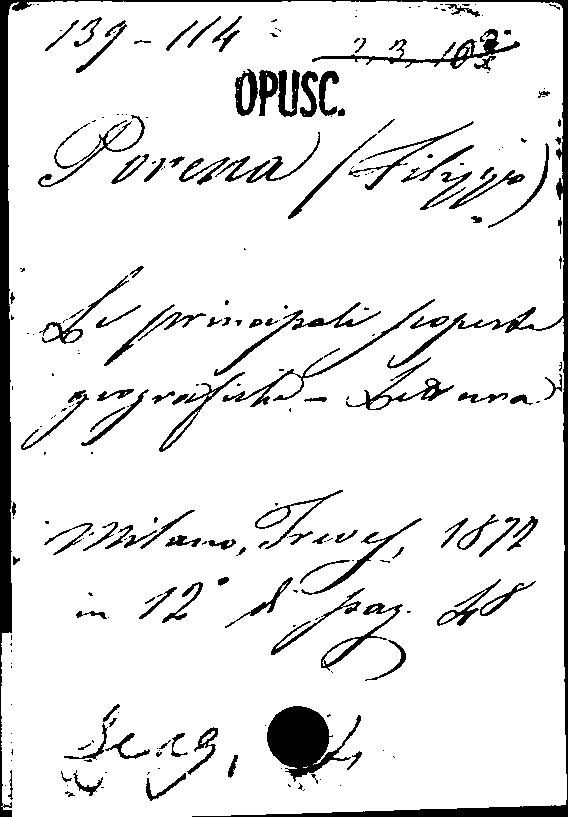 139-114
2, 3, 10
OPUSC.
Porena (Filippo)
Le principali scoperte
geografiche - Lettura
Milano, Treves, 1872
in 12° di pag. 48